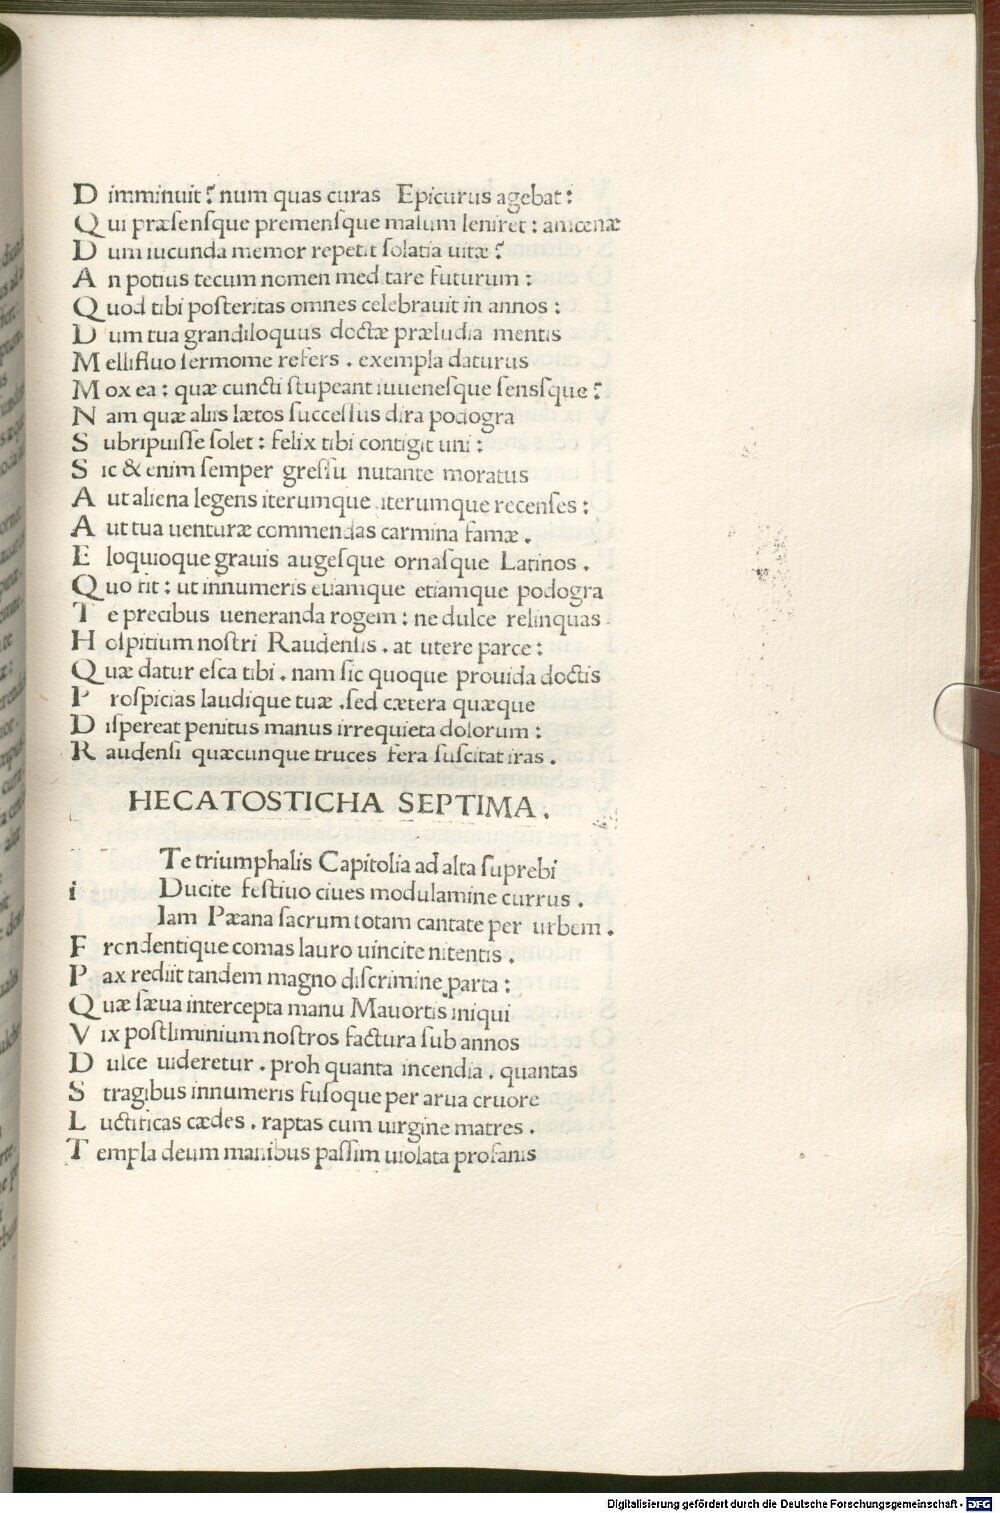 D imminuit? num quas curas Epicurus agebat:
Q ui præsenſque premenſque malum leniret: amœnæ
D um iucunda memor repetit ſolatia uitæ?
A n potius tecum nomen med tare futurum:
Q uod tibi poſteritas omnes celebrauit in annos:
D um tua grandiloquus doctæ præludia mentis
M ellifluo ſermome refers. exempla daturus
M ox ea: quæ cuncti ſtupeant iuueneſque ſensſque?
N am quæ aliis lætos ſucceſſus dira podogra
S ubripuiſſe ſolet: felix tibi contigit uni:
S ic & enim ſemper greſſu nutante moratus
A ut aliena legens iterumque iterumque recenſes:
A ut tua uenturæ commendas carmina famæ.
E loquioque grauis augeſque ornaſque Latinos.
Q uo fit: ut innumeris etiamque etiamque podogra
T e precibus ueneranda rogem: ne dulce relinquas
H oſpitium noſtri Raudenſis. at utere parce:
Q uæ datur eſca tibi. nam ſic quoque prouida doctis
P roſpicias laudique tuæ. ſed cætera quæque
D iſpereat penitus manus irrequieta dolorum:
R audenſi quæcunque truces fera ſuſcitat iras.
HECATOSTICHA SEPTIMA.
Te triumphalis Capitolia ad alta ſuprebi
i Ducite feſtiuo ciues modulamine currus.
Iam Pæana ſacrum totam cantate per urbem.
F rondentique comas lauro uincite nitentis.
P ax rediit tandem magno diſcrimine parta:
Q uæ ſæua intercepta manu Mauortis iniqui
V ix poſtliminium noſtros factura ſub annos
D ulce uideretur. proh quanta incendia. quantas
S tragibus innumeris fuſoque per arua cruore
L uctificas cædes. raptas cum uirgine matres.
T empla deum manibus paſſim uiolata profanis
Digitalisierung gefördert durch die Deutsche Forschungsgemeinschaft - DFG